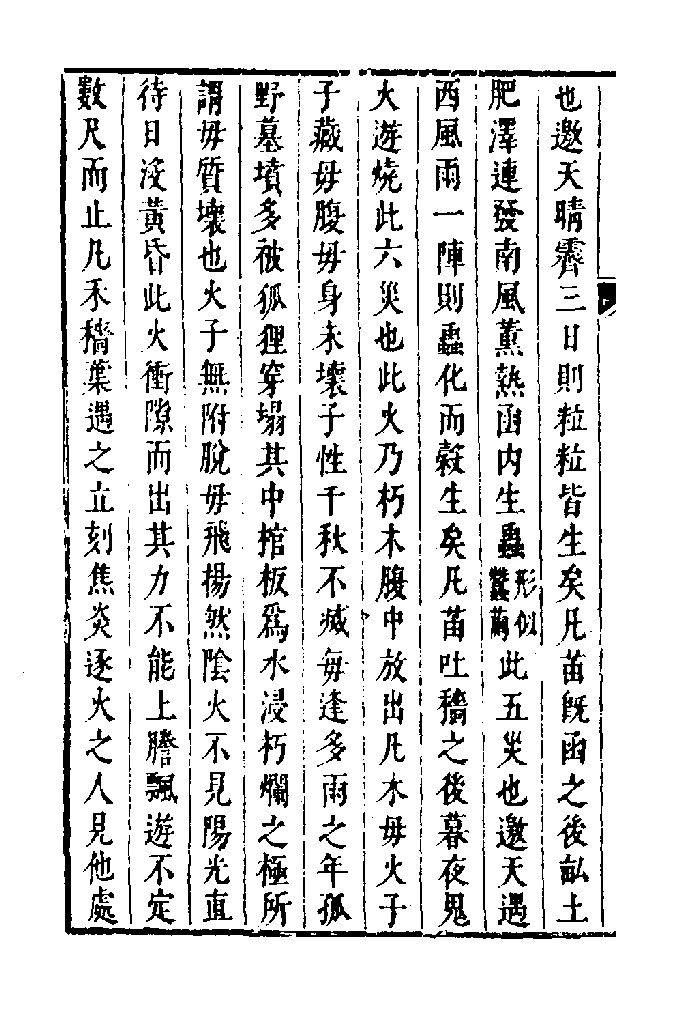 也邀天晴霽三日則粒粒皆生矣凡苗旣函之後畝土
肥澤連發南風薰熱函内生蟲形似蠶繭此五災也邀天遇
西風雨一陣則蟲化而穀生矣凡苗吐穡之後暮夜鬼
火遊燒此六災也此火乃朽木腹中放出凡木母火子
子藏母腹母身未壞子性千秋不滅每逢多雨之年孤
野墓墳多被狐狸穿塌其中棺板爲水浸朽爛之極所
謂母質壞也火子無附脫母飛揚然陰火不見陽光直
待日沒黃昏此火衝隙而出其力不能上騰飄遊不定
數尺而止凡禾穡葉遇之立刻焦炎逐火之人見他處